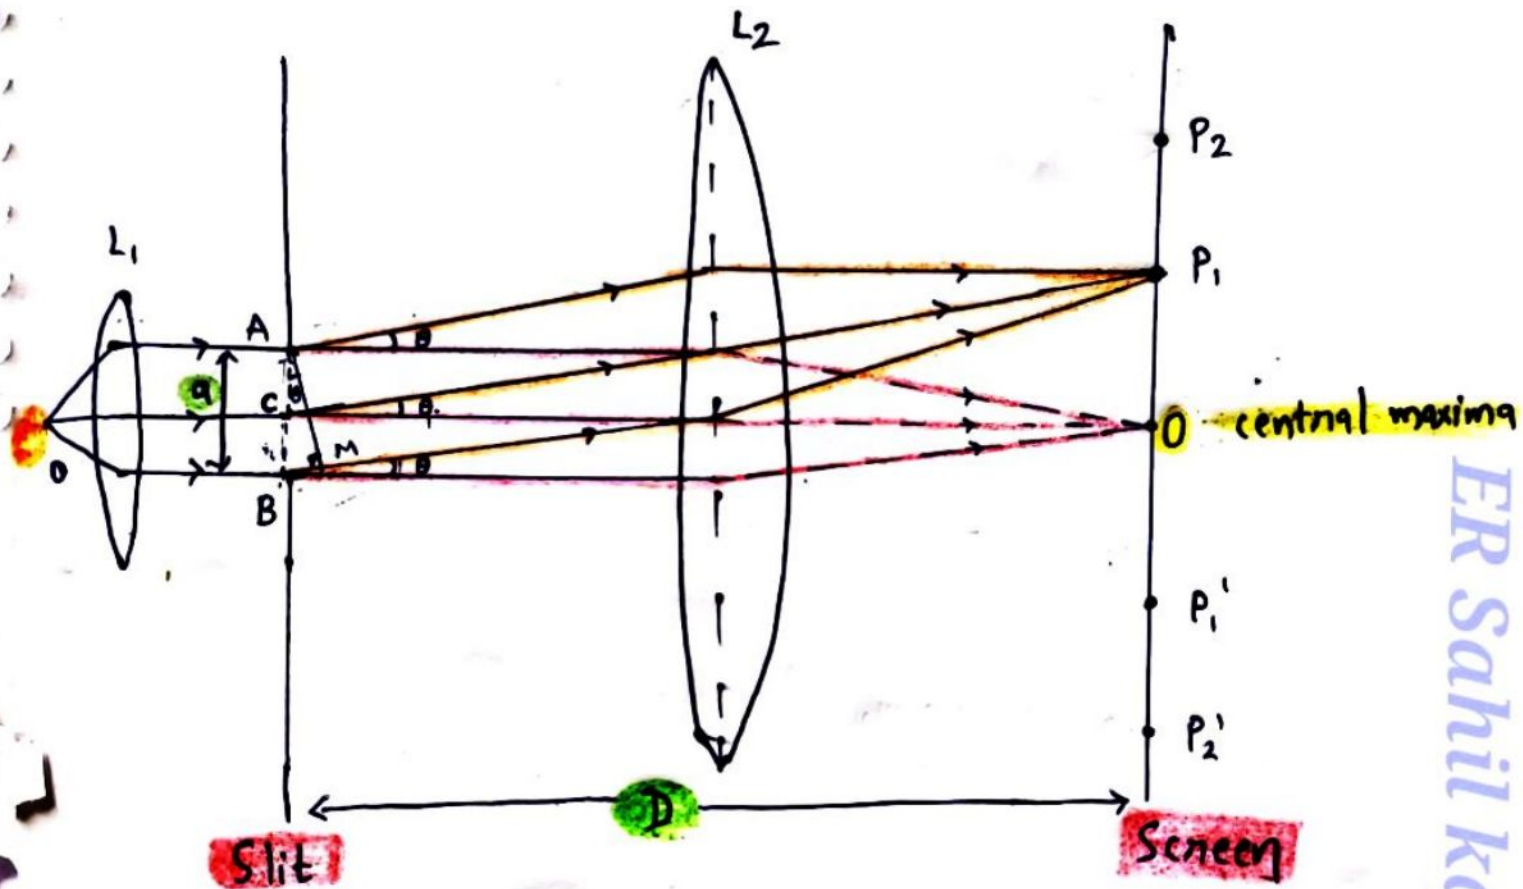 L2
P2
L1
P1
A
θ
a
C
θ
θ
O central maxima
M
θ
O
B
P1'
P2'
D
Slit
Screen
ER Sahil